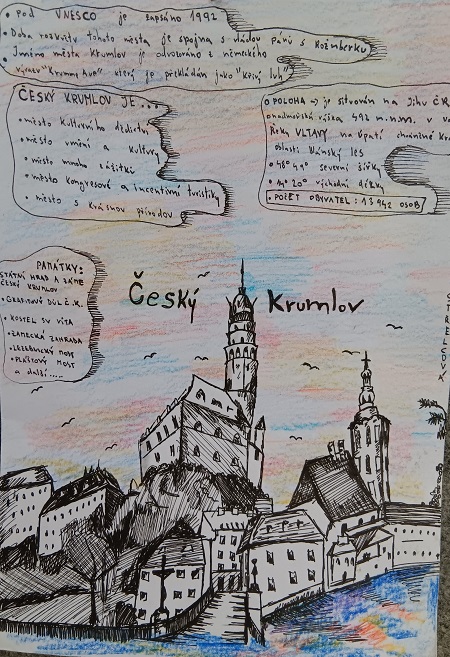 • Pod UNESCO je zapsáno 1992
• Doba rozkvětu tohoto města je spojna s vládou pánů s Rožmberku
• Jméno města Krumlov je odvozováno z německého
výrazu "Krumme Aue" který je překládán jako "Křivý luh"
ČESKÝ KRUMLOV JE...
• město kulturního dědictví
• město umění a kultury
• město mnoha zážitků
• město kongresové a incentivní turistiky
• město s krásnou přírodou
• POLOHA → je situován na Jihu ČR
nadmořská výška 492 m.n.m. v
Řeky VLTAVY na úpatí chráněné
oblasti Blanský les
• 48° 49° severní šířky
• 14° 20° východní délky
• POČET OBYVATEL: 13 942 OSOB
PAMÁTKY:
STÁTNÍ HRAD A ZÁME
ČESKÝ KRUMLOV
• GRAFITOVÝ DŮL Č.K.
• KOSTEL SV VÍTA
• ZÁMECKÁ ZAHRADA
• LAZEBNICKÝ MOST
• PLÁŠŤOVÝ MOST
a další....
Český Krumlov